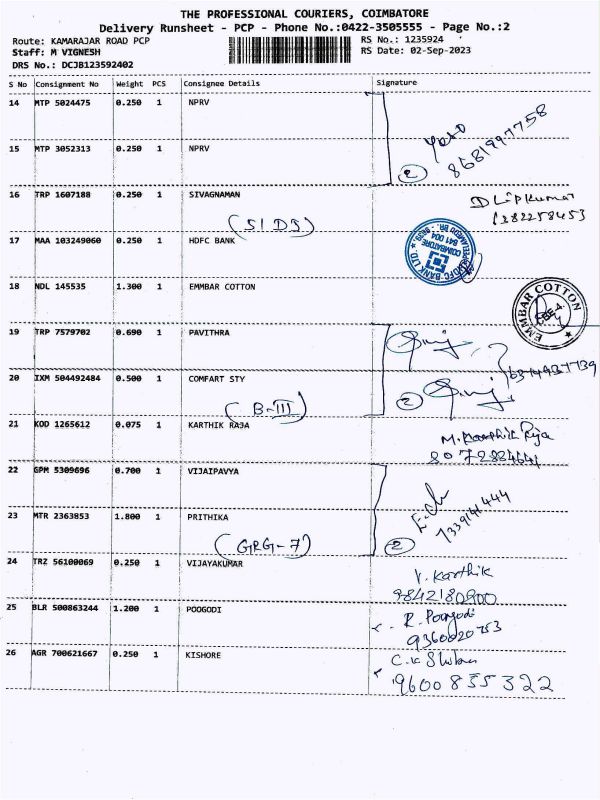 THE PROFESSIONAL COURIERS, COIMBATORE
Delivery Runsheet - PCP - Phone No.:0422-3505555 - Page No.:2
Route: KAMARAJAR ROAD PCP RS No.: 1235924
Staff: M VIGNESH RS Date: 02-Sep-2023
DRS No.: DCJB123592402
S No Consignment No Weight PCS Consignee Details Signature
14 MTP 5024475 0.250 1 NPRV
15 MTP 3052313 0.250 1 NPRV
2 8681997758
16 TRP 1607188 0.250 1 SIVAGNAMAN
DLipkumar
(SIDJ)
17 MAA 103249060 0.250 1 HDFC BANK
HDFC BANK LTD.
COIMBATORE
641 004
18 NDL 145535 1.300 1 EMMBAR COTTON
EMMBAR COTTON
CBE-4
19 TRP 7579702 0.690 1 PAVITHRA
20 IXM 504492484 0.500 1 COMFART STY
(B-III) 2
21 KOD 1265612 0.075 1 KARTHIK RAJA
M. Karthik Raja
22 GPM 5309696 0.700 1 VIJAIPAVYA
23 MTR 2363853 1.800 1 PRITHIKA
(GRG-7) 2
24 TRZ 56100069 0.250 1 VIJAYAKUMAR
V. Karthik
9842180900
25 BLR 500863244 1.200 1 POOGODI
R. Poogodi
9360020753
26 AGR 700621667 0.250 1 KISHORE
9600855322